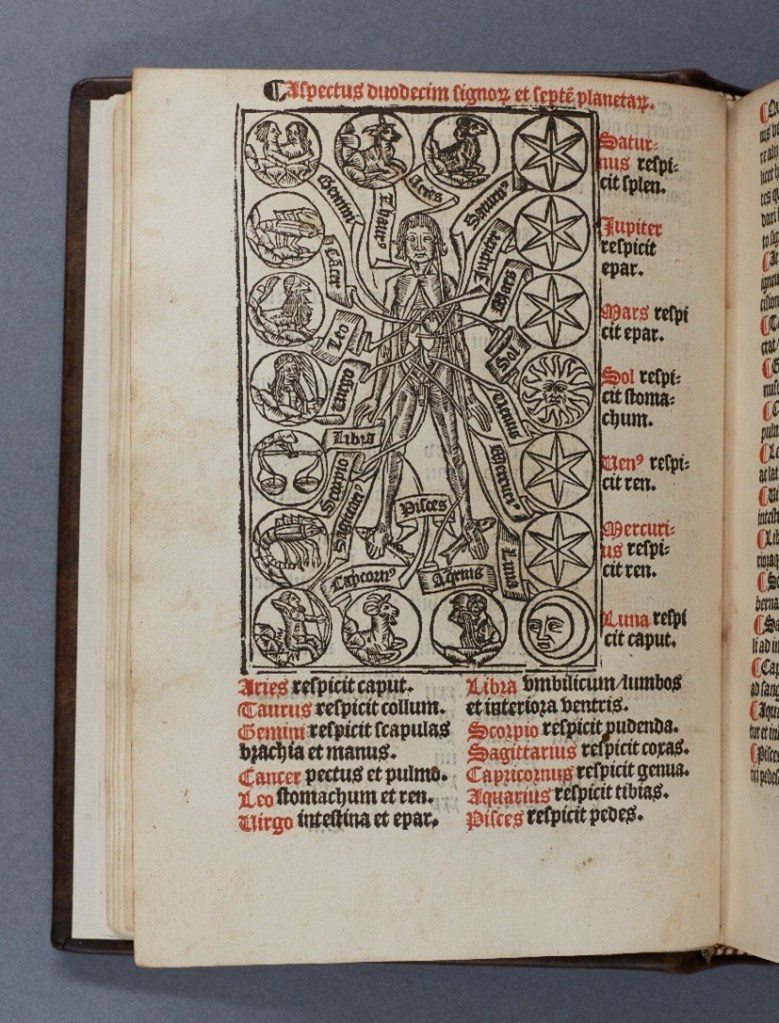 Aspectus duodecim signoꝝ et septē planetaꝝ.
Gemini
Thaurꝰ
Aries
Saturnꝰ
Cācer
Jupiter
Mars
Leo
Sol
Virgo
Venus
Libra
Mercuriꝰ
Scorpio
Sagittariꝰ
Pisces
Capcornꝰ
Aqrius
Luna
Satur-
nus respi
cit splen.
Jupiter
respicit
epar.
Mars respi
cit epar.
Sol respi-
cit stoma-
chum.
Uenꝰ respi-
cit ren.
Mercuri-
us respi-
cit ren.
Luna respi
cit caput.
Aries respicit caput.
Taurus respicit collum.
Gemini respicit scapulas
brachia et manus.
Cancer pectus et pulmo.
Leo stomachum et ren.
Uirgo intestina et epar.
Libra vmbilicum/lumbos
et interiora ventris.
Scorpio respicit pudenda.
Sagittarius respicit coxas.
Capricornus respicit genua.
Aquarius respicit tibias.
Pisces respicit pedes.